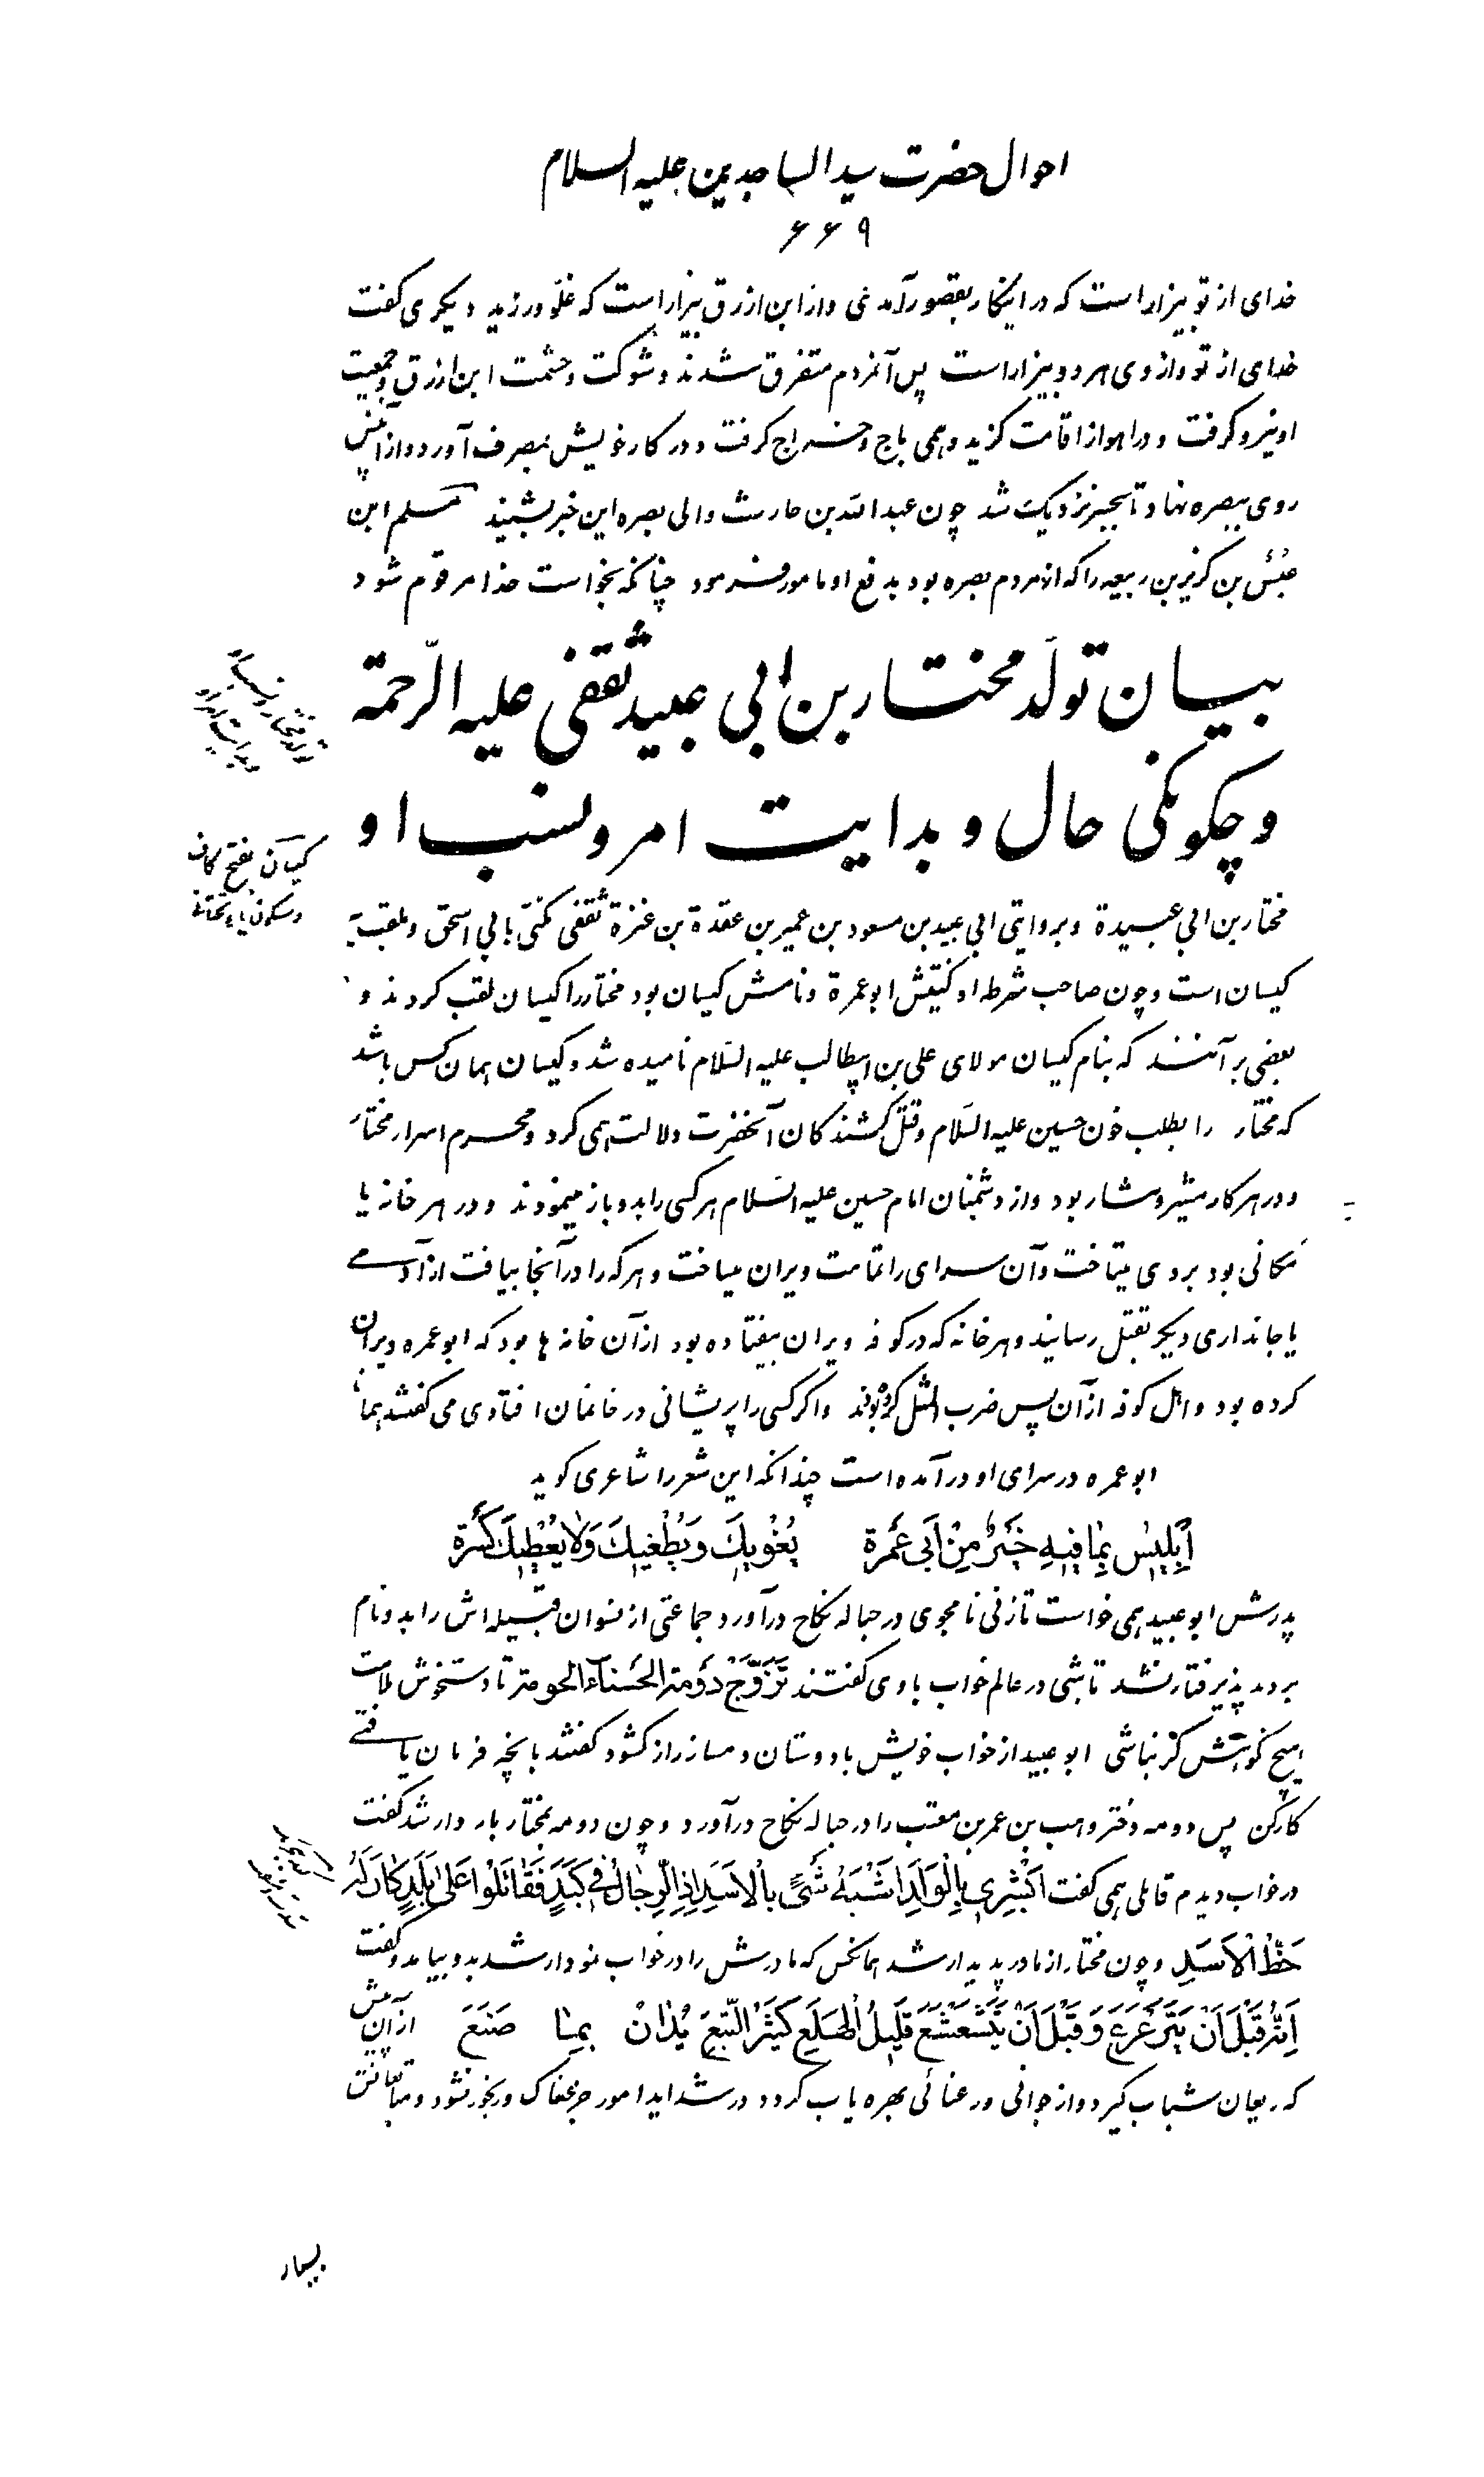 احوال حضرت سید الساجدین علیه السلام
۶۶۹
خدای از تو بیزار است که در اینکار بقصور آمدی و از ابن ازرق بیزار است که غلّو ورزید دیگری گفت
خدای از تو و از وی هر دو بیزار است پس آنمردم متفرق شدند و شوکت و حشمت ابن ازرق و جمعیت
او نیرو گرفت و در اهواز اقامت گزید و همی باج و خراج گرفت و در کار خویش بمصرف آورد و از آنپس
روی ببصره نهاد تا بجسر نزدیک شد چون عبدالله بن حارث والی بصره این خبر بشنید مسلم ابن
عبس بن کریز بن ربیعه را که از مردم بصره بود بدفع او مامور فرمود چنانکه بخواست خدا مرقوم شود
بیان تولّد مختار بن ابی عبید ثقفی علیه الرّحمة
و چگونگی حال و بدایت امر و نسب او
تولد مختار و نسب
و بدایت امر او
کیسان بفتح کاف
و سکون یاء تحتانی
مختار بن ابی عبیدة و بروایتی ابی عبید بن مسعود بن عمیر بن عقدة بن عنزة ثقفی مکنّی بابی اسحق و ملقب به
کیسان است و چون صاحب شرطه او کنیتش ابو عمرة و نامش کیسان بود مختار را کیسان لقب کردند و
بعضی بر آنند که بنام کیسان مولای علی بن ابیطالب علیه السّلام نامیده شد و کیسان همان کس باشد
که مختار را بطلب خون حسین علیه السّلام و قتل کشندکان آنحضرت دلالت همی کرد و محرم اسرار مختار
و در هر کار مشیر و مشار بود و از دشمنان امام حسین علیه السّلام هر کسی را بدو باز مینمودند و در هر خانه یا
مکانی بود بر وی میتاخت و آن سرای را تمامت ویران میساخت و هر که را در آنجا بیافت از آدمی
یا جانداری دیگر بقتل رسانید و هر خانه که در کوفه ویران بیفتاده بود از آن خانه ها بود که ابو عمره ویران
کرده بود و اهل کوفه از آن پس ضرب المثل کرده بودند و اگر کسی را پریشانی در خانمان افتادی می گفتند همانا
ابو عمره در سرای او در آمده است چنانکه این شعر را شاعری گوید
اِبْلِیسُ بِمٰا فیهِ خَیْرٌ مِنْ اَبی عَمْرَة یُغْویكَ وَ یُطْغیكَ وَلٰا یُعْطیكَ كَسْرَة
پدرش ابو عبید همی خواست تا زنی نامجوی در حباله نکاح درآورد جماعتی از نسوان قبیله اش را بدو نام
بردند پذیرفتار نشد تا شبی در عالم خواب با وی گفتند تَزَوَّجْ دُومَة الحَسْنٰاء الحومة تا دستخوش ملامت
هیچ نکوهش گر نباشی ابو عبید از خواب خویش با دوستان دمساز راز گشود گفتند بآنچه فرمان یافتی
کار کن پس دومه دختر وهب بن عمر بن معتب را در حباله نکاح درآورد و چون دومه بمختار باردار شد گفت
در خواب دیدم قائلی همی گفت اَبْشِری بِالْوَلَدِ اَشْبَهُ شَیْءٍ بِالْاَسَدِ اِذِ الرِّجٰالُ فی كَبَدٍ فَقٰاتَلُوا عَلیٰ بَلَدٍ كٰانَ لَهُ
حَظُّ الْاَسَدِ و چون مختار از مادر پدیدار شد همانکس که مادرش را در خواب نمودار شد بدو بیامد و گفت
اِنَّهُ قَبْلَ اَنْ یَتَرَعْرَعَ وَ قَبْلَ اَنْ یَتَشَعْشَعَ قَلیلُ الْهَلَعِ كَثیرُ التَّبَعِ یُدٰانُ بِمٰا صَنَعَ از آن پیش
که ریعان شباب گیرد و از جوانی و رعنائی بهره یاب گردد در شداید امور جزعناک و رنجور نشود و متابعانش
بسیار